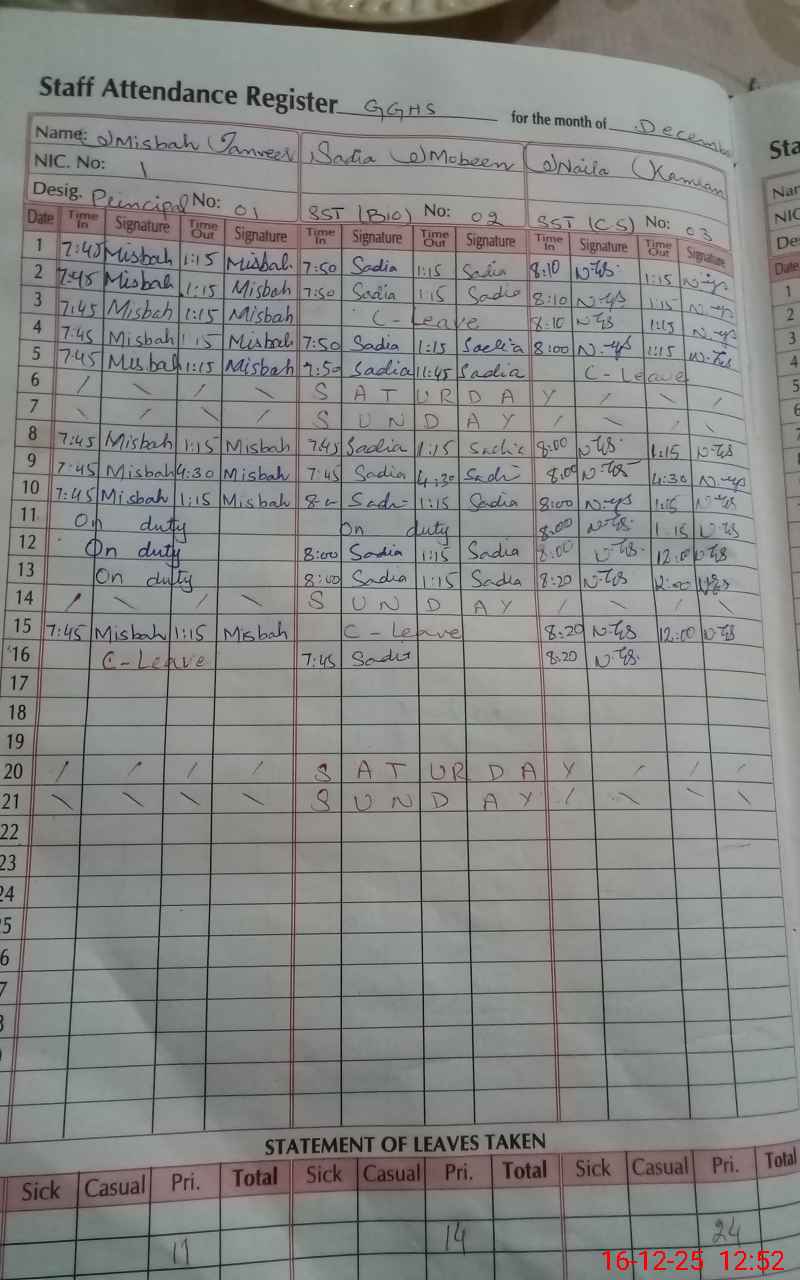 Staff Attendance Register GGHS for the month of December
Name: Misbah Tanveer Sadia Mobeen Naila Kamran
NIC. No: 1
Desig. Principal No: 01 SST (Bio) No: 02 SST (CS) No: 03
Date Time In Signature Time Out Signature Time In Signature Time Out Signature Time In Signature Time Out Signature
1 7:45 Misbah 1:15 Misbah 7:50 Sadia 1:15 Sadia 8:10 1:15
2 7:45 Misbah 1:15 Misbah 7:50 Sadia 1:15 Sadia 8:10 1:15
3 7:45 Misbah 1:15 Misbah C-Leave 8:10 1:15
4 7:45 Misbah 1:15 Misbah 7:50 Sadia 1:15 Sadia 8:00 1:15
5 7:45 Misbah 1:15 Misbah 7:50 Sadia 11:45 Sadia C-Leave
6 / \ / \ S A T U R D A Y / \ /
7 \ / \ / S U N D A Y / \ / \
8 7:45 Misbah 1:15 Misbah 7:45 Sadia 1:15 Sadia 8:00 1:15
9 7:45 Misbah 4:30 Misbah 7:45 Sadia 4:30 Sadi 8:00 4:30
10 7:45 Misbah 1:15 Misbah Sadi 1:15 Sadia 8:00 1:15
11 On duty On duty 8:00 1:15
12 On duty 8:00 Sadia 1:15 Sadia 8:00 12:00
13 On duty 8:00 Sadia 1:15 Sadia 8:20 12:00
14 / \ / \ S U N D A Y / \ / \
15 7:45 Misbah 1:15 Misbah C-Leave 8:20 12:00
16 C-Leave 7:45 Sadi 8:20
17
18
19
20 / / / / S A T U R D A Y / / /
21 \ \ \ \ S U N D A Y / \ \ \
22
23
24
5
6
7
STATEMENT OF LEAVES TAKEN
Sick Casual Pri. Total Sick Casual Pri. Total Sick Casual Pri. Total
11 14 24
16-12-25 12:52